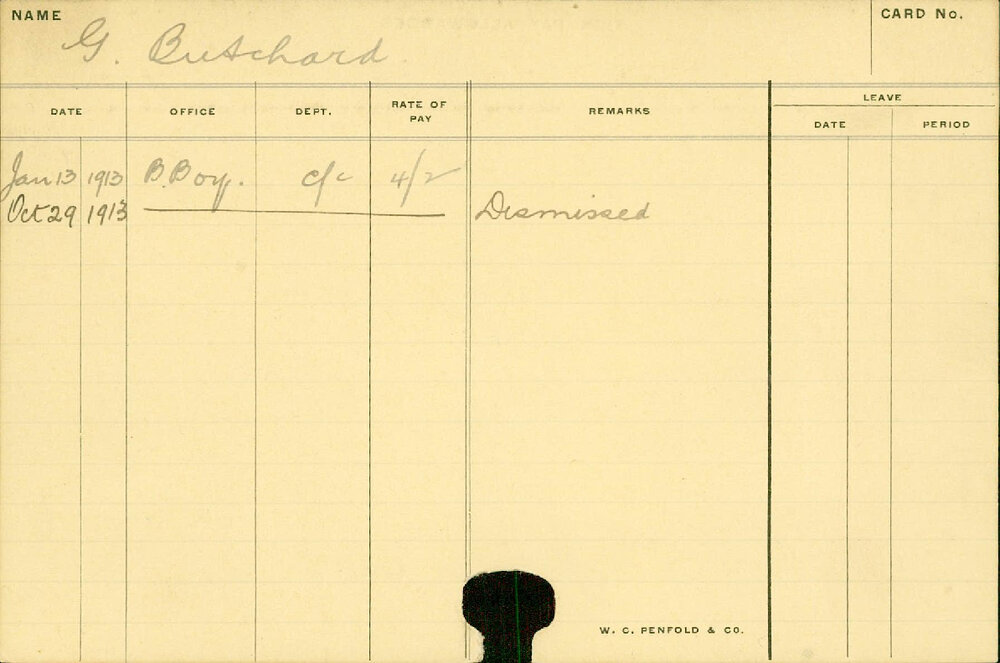 NAME
G. Butchard
CARD No.
DATE OFFICE DEPT. RATE OF PAY REMARKS LEAVE
DATE PERIOD
Jan 13 1913 B. Boy. c/c 4/2
Oct 29 1913 Dismissed
W. C. PENFOLD & CO.